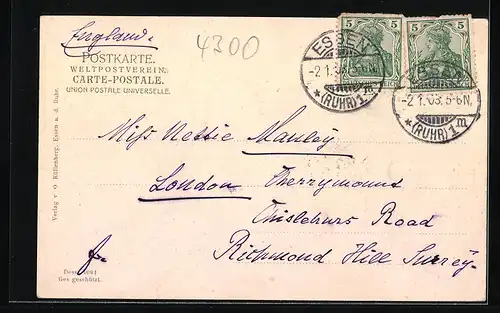 England.
4300
POSTKARTE.
WELTPOSTVEREIN.
CARTE-POSTALE.
UNION POSTALE UNIVERSELLE.
5 5
5 5
ESSEN
-2.1.03.
*(RUHR)1m
ESSEN
-2.1.03.5-6N.
*(RUHR)1m
Miss Nessie Manley
London Cherrymount
Chislehurs Road
Richmond Hill Surrey.
Verlag v. O. Küllenberg, Essen a. d. Ruhr.
Ges geschützt.